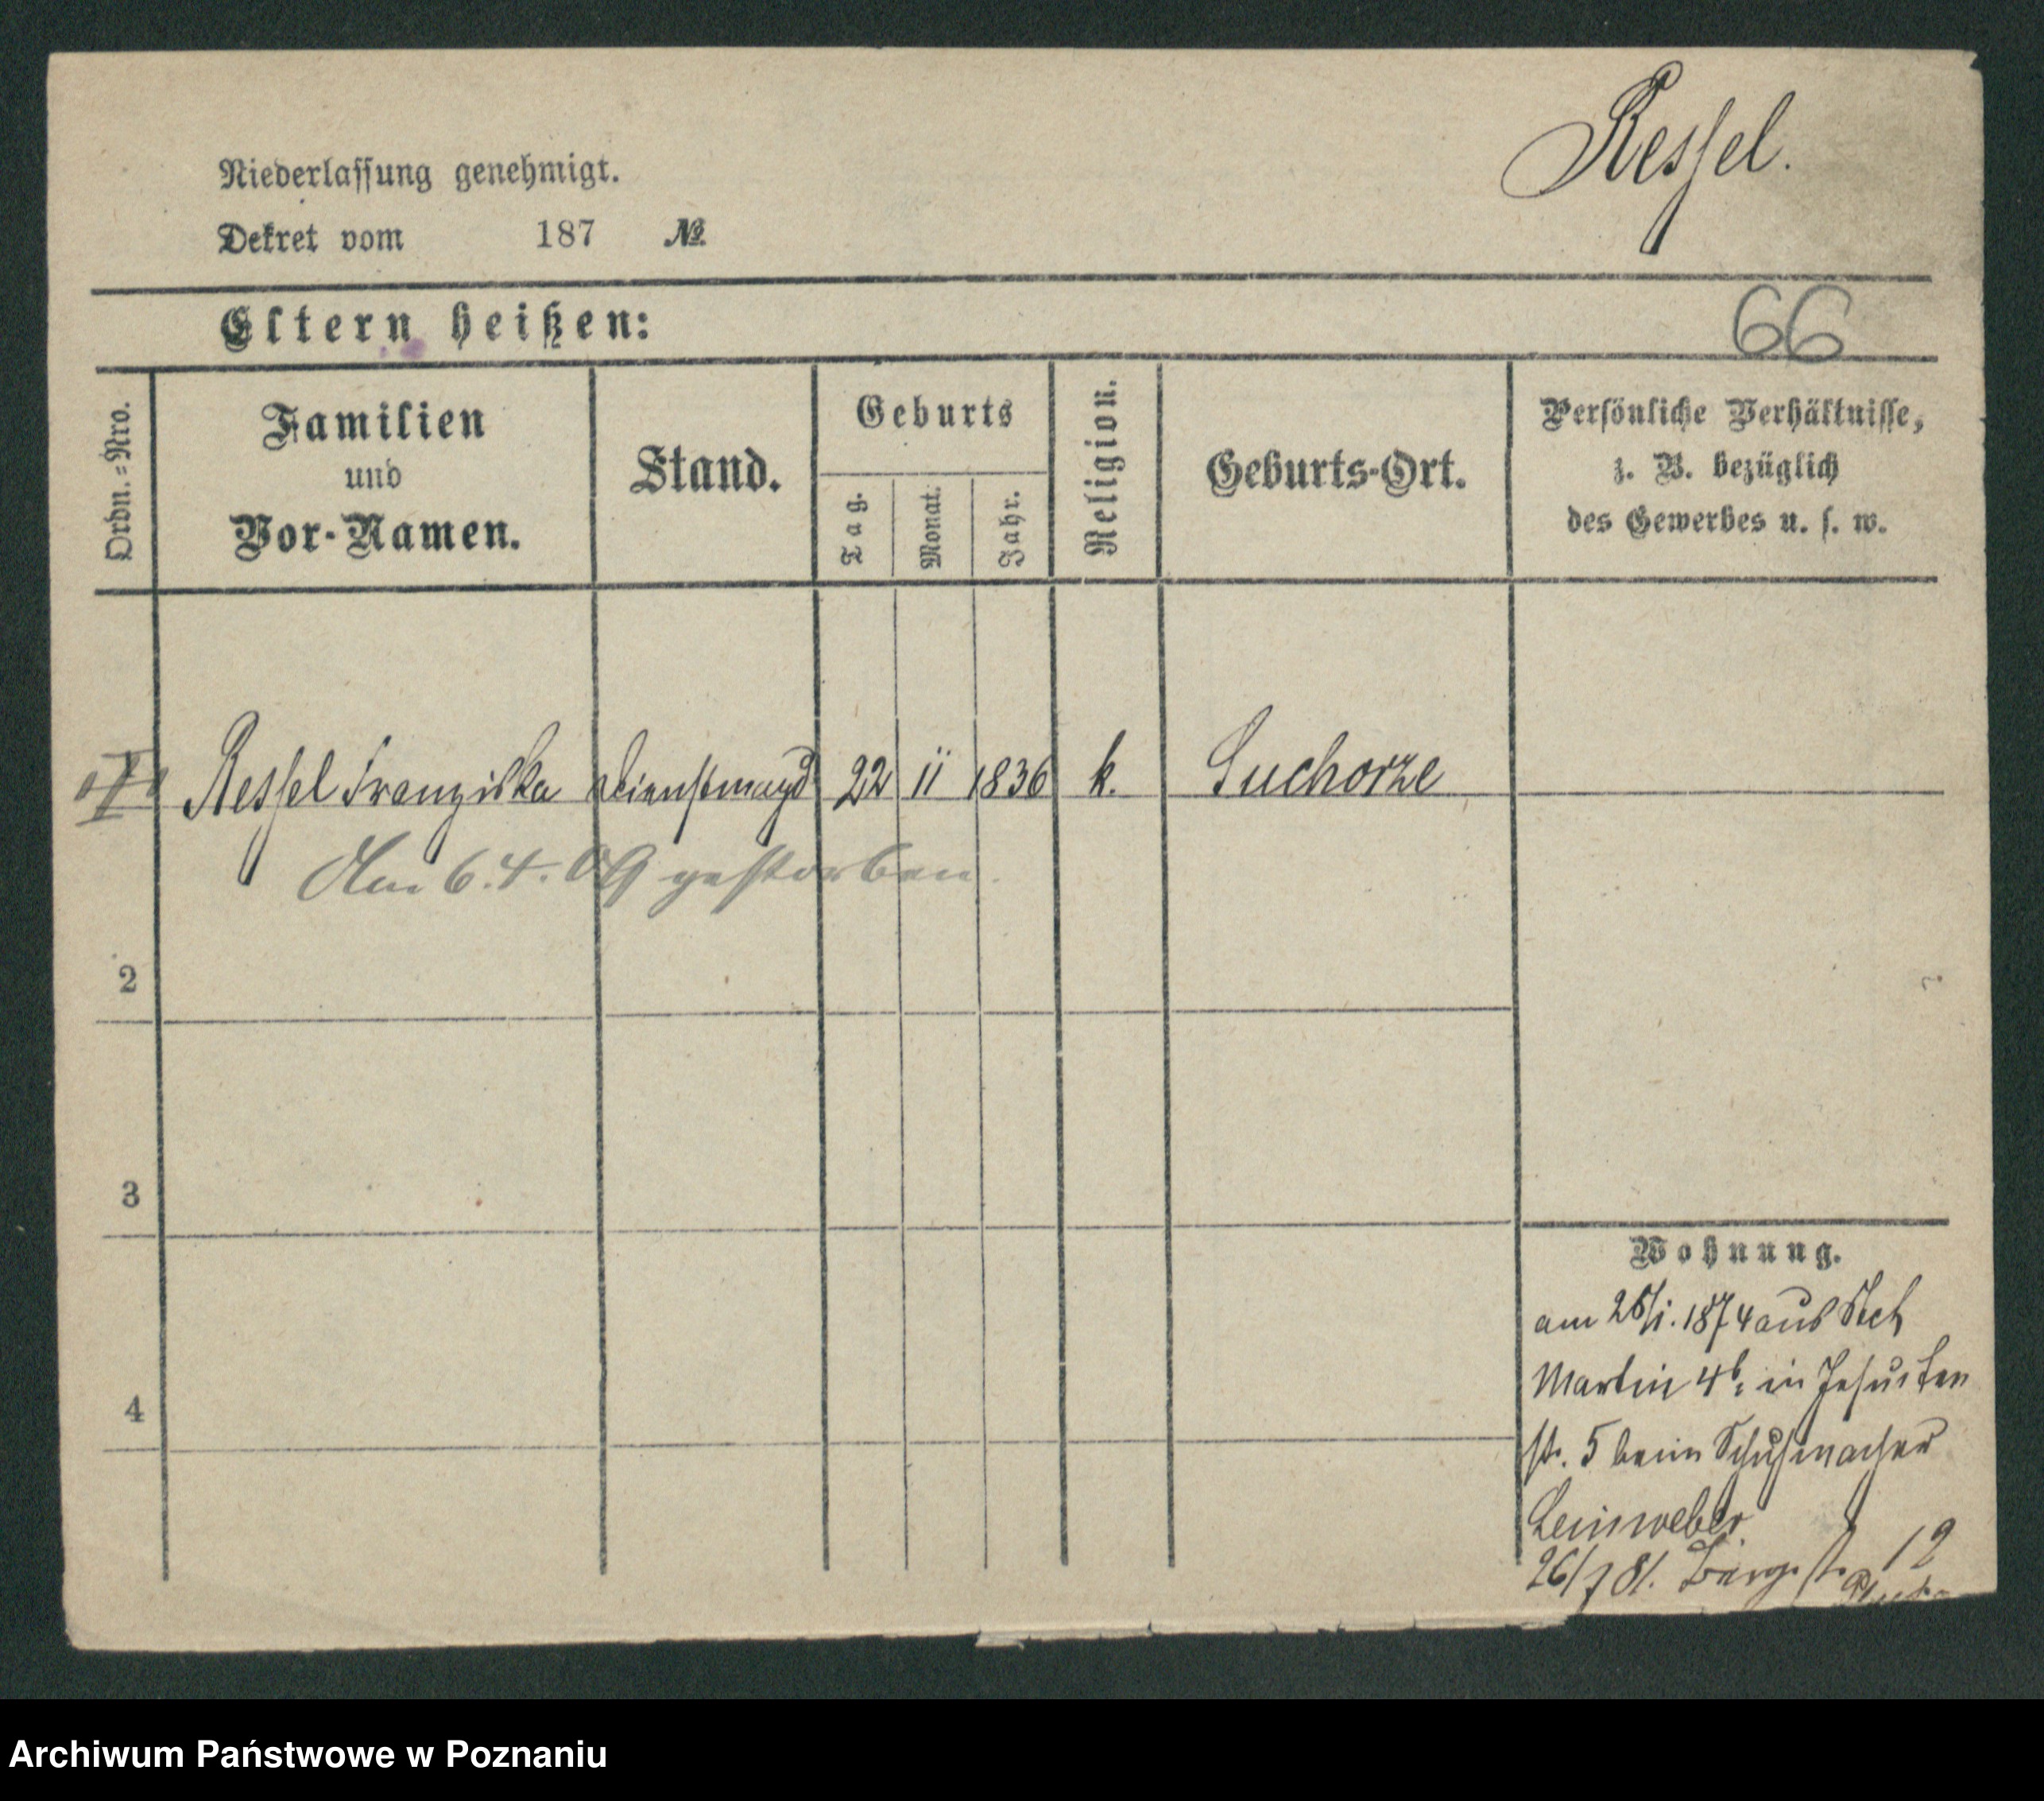 Ressel.
Niederlassung genehmigt.
Dekret vom 187 №
Eltern heißen:
66
Ordn.=Nro.
Familien
und
Vor-Namen.
Stand.
Geburts
Tag.
Monat.
Jahr.
Religion.
Geburts-Ort.
Persönliche Verhältnisse,
z. B. bezüglich
des Gewerbes u. s. w.
Ressel Franziska Dienstmagd 22 11 1836 k. Suchorze
Am 6.4.09 gestorben.
2
3
4
Wohnung.
am 1874 aus
Martin 4b, in Jesuiten
str. 5 beim Schuhmacher
Leinweber
26/7 81. 12
Archiwum Państwowe w Poznaniu